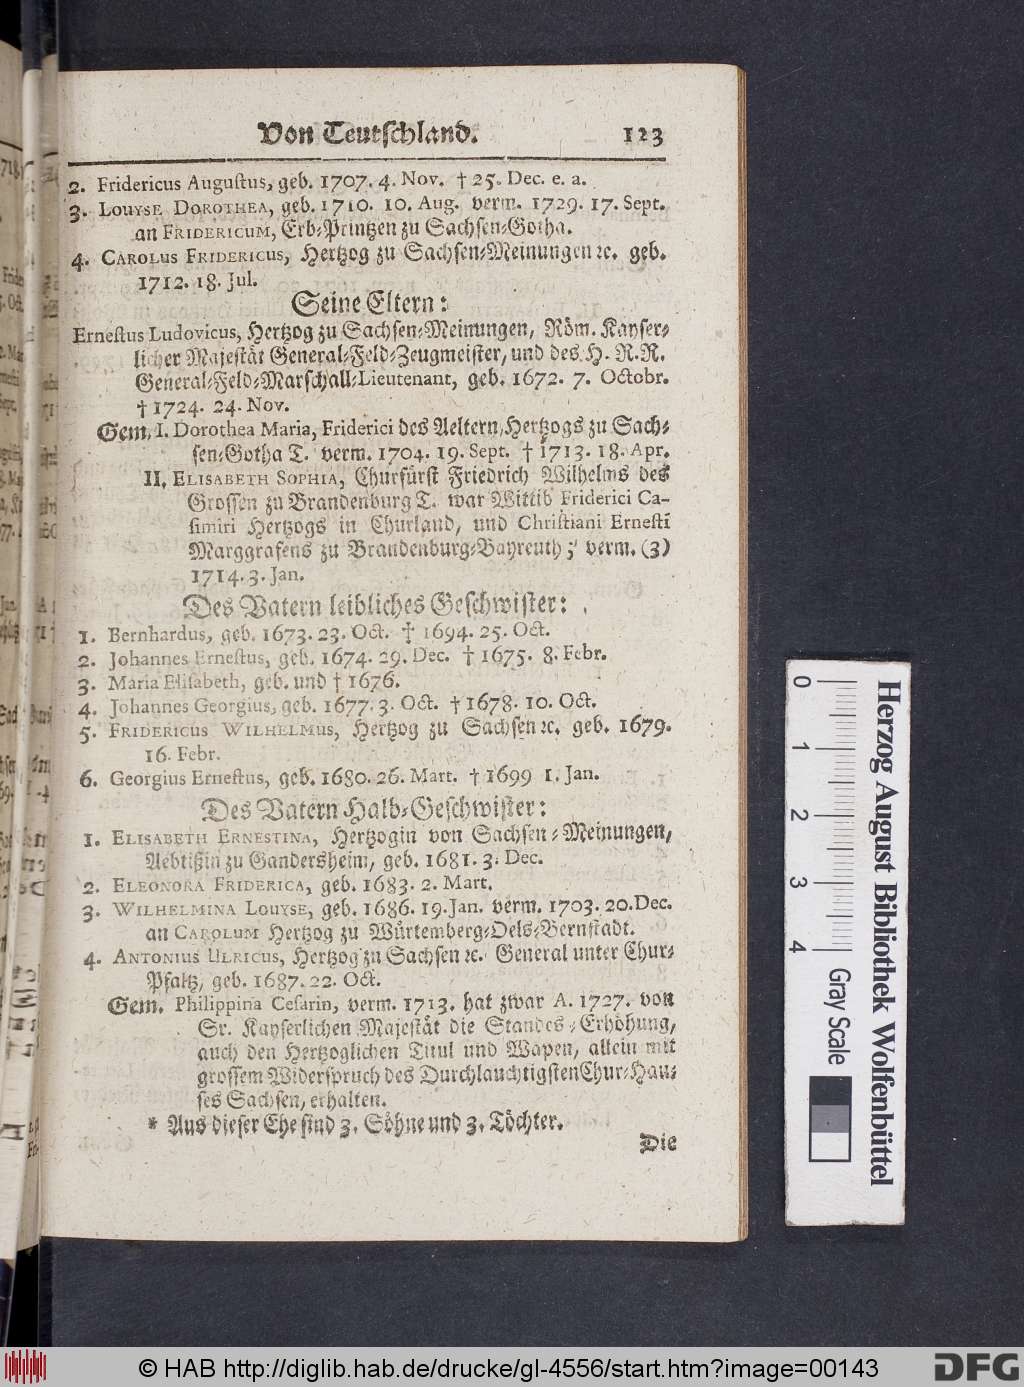 Von Teutschland. 123
2. Fridericus Augustus, geb. 1707. 4. Nov. † 25. Dec. e. a.
3. LOUYSE DOROTHEA, geb. 1710. 10. Aug. verm. 1729. 17. Sept.
an FRIDERICUM, Erb-Printzen zu Sachsen-Gotha.
4. CAROLUS FRIDERICUS, Hertzog zu Sachsen-Meinungen ꝛc. geb.
1712. 18. Jul.
Seine Eltern:
Ernestus Ludovicus, Hertzog zu Sachsen-Meinungen, Röm. Kayser-
licher Majestät General-Feld-Zeugmeister, und des H. R. R.
General-Feld-Marschall-Lieutenant, geb. 1672. 7. Octobr.
† 1724. 24. Nov.
Gem. I. Dorothea Maria, Friderici des Aeltern, Hertzogs zu Sach-
sen-Gotha T. verm. 1704. 19. Sept. † 1713. 18. Apr.
II. ELISABETH SOPHIA, Churfürst Friedrich Wilhelms des
Grossen zu Brandenburg T. war Wittib Friderici Ca-
simiri Hertzogs in Churland, und Christiani Ernesti
Marggrafens zu Brandenburg-Bayreuth; verm. (3)
1714. 3. Jan.
Des Vatern leibliches Geschwister:
1. Bernhardus, geb. 1673. 23. Oct. † 1694. 25. Oct.
2. Johannes Ernestus, geb. 1674. 29. Dec. † 1675. 8. Febr.
3. Maria Elisabeth, geb. und † 1676.
4. Johannes Georgius, geb. 1677. 3. Oct. † 1678. 10. Oct.
5. FRIDERICUS WILHELMUS, Hertzog zu Sachsen ꝛc. geb. 1679.
16. Febr.
6. Georgius Ernestus, geb. 1680. 26. Mart. † 1699 1. Jan.
Des Vatern Halb-Geschwister:
1. ELISABETH ERNESTINA, Hertzogin von Sachsen-Meinungen,
Aebtißin zu Gandersheim, geb. 1681. 3. Dec.
2. ELEONORA FRIDERICA, geb. 1683. 2. Mart.
3. WILHELMINA LOUYSE, geb. 1686. 19. Jan. verm. 1703. 20. Dec.
an CAROLUM Hertzog zu Würtemberg-Oels-Bernstadt.
4. ANTONIUS ULRICUS, Hertzog zu Sachsen ꝛc. General unter Chur-
Pfaltz, geb. 1687. 22. Oct.
Gem. Philippina Cesarin, verm. 1713. hat zwar A. 1727. von
Sr. Kayserlichen Majestät die Standes-Erhöhung,
auch den Hertzoglichen Titul und Wapen, allein mit
grossem Widerspruch des Durchlauchtigsten Chur-Hau-
ses Sachsen, erhalten.
* Aus dieser Ehe sind 3. Söhne und 3. Töchter.
Die
0 1 2 3 4
Herzog August Bibliothek Wolfenbüttel
Gray Scale
© HAB http://diglib.hab.de/drucke/gl-4556/start.htm?image=00143
DFG